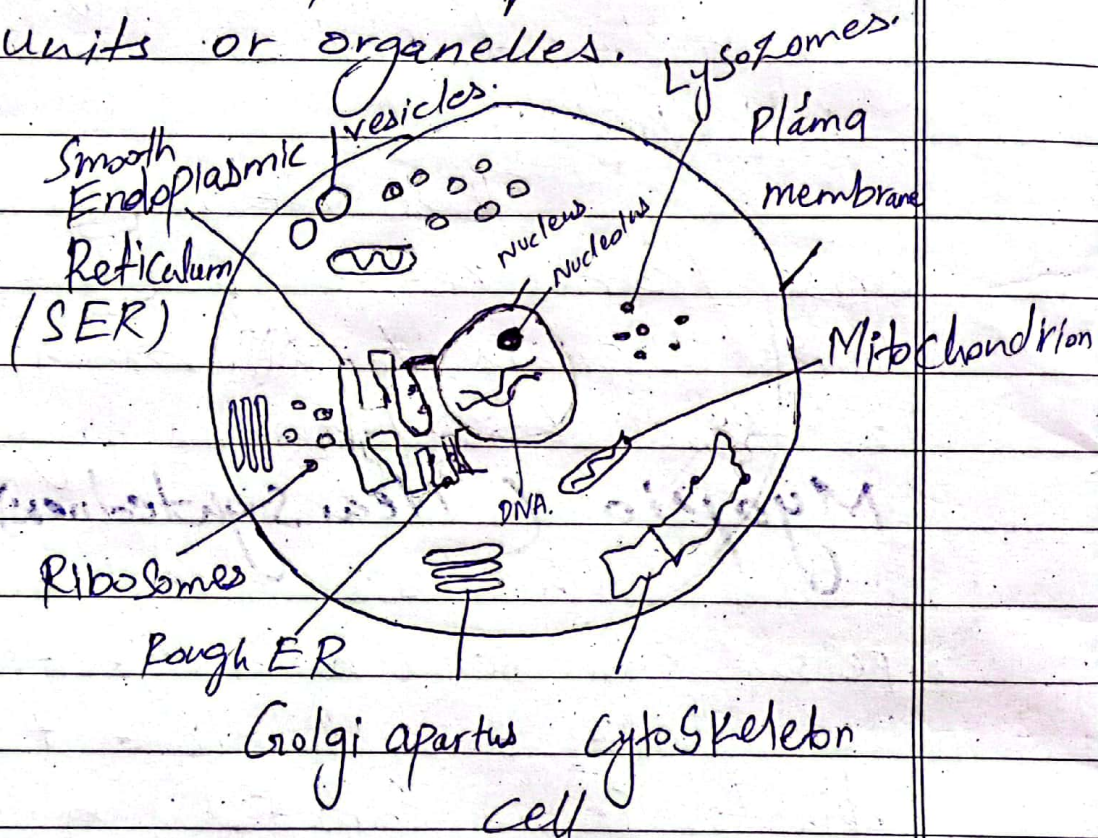 units or organelles.
Lysozomes.
vesicles.
Pláma
membrane
Smooth
Endoplasmic
Reticulum
(SER)
Nucleus
Nucleolus
Mitochondrion
DNA.
Ribosomes
Rough ER
Golgi apartus
Cytoskeleton
Cell